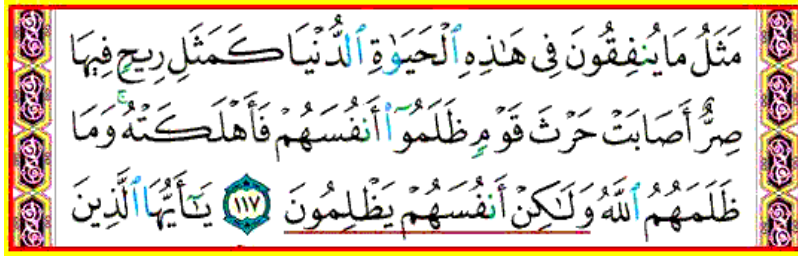 مَثَلُ مَا يُنفِقُونَ فِى هَـٰذِهِ ٱلْحَيَوٰةِ ٱلدُّنْيَا كَمَثَلِ رِيحٍ فِيهَا
صِرٌّ أَصَابَتْ حَرْثَ قَوْمٍ ظَلَمُوٓا۟ أَنفُسَهُمْ فَأَهْلَكَتْهُ ۚ وَمَا
ظَلَمَهُمُ ٱللَّهُ وَلَـٰكِنْ أَنفُسَهُمْ يَظْلِمُونَ ١١٧ يَـٰٓأَيُّهَا ٱلَّذِينَ